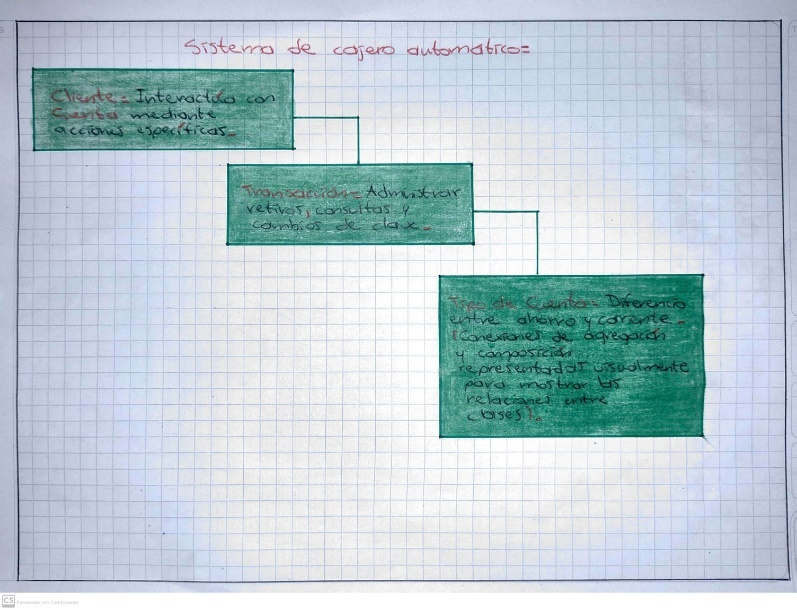 Sistema de cajero automatico=
Cliente= Interactúa con
Cuenta mediante
acciones específicas.
Transacción= Administrar
retiros, consultas y
cambios de clave.
Tipo de Cuenta= Diferencia
entre ahorro y corriente.
(Conexiones de agregación
y composición
representadas visualmente
para mostrar las
relaciones entre
clases).
CS